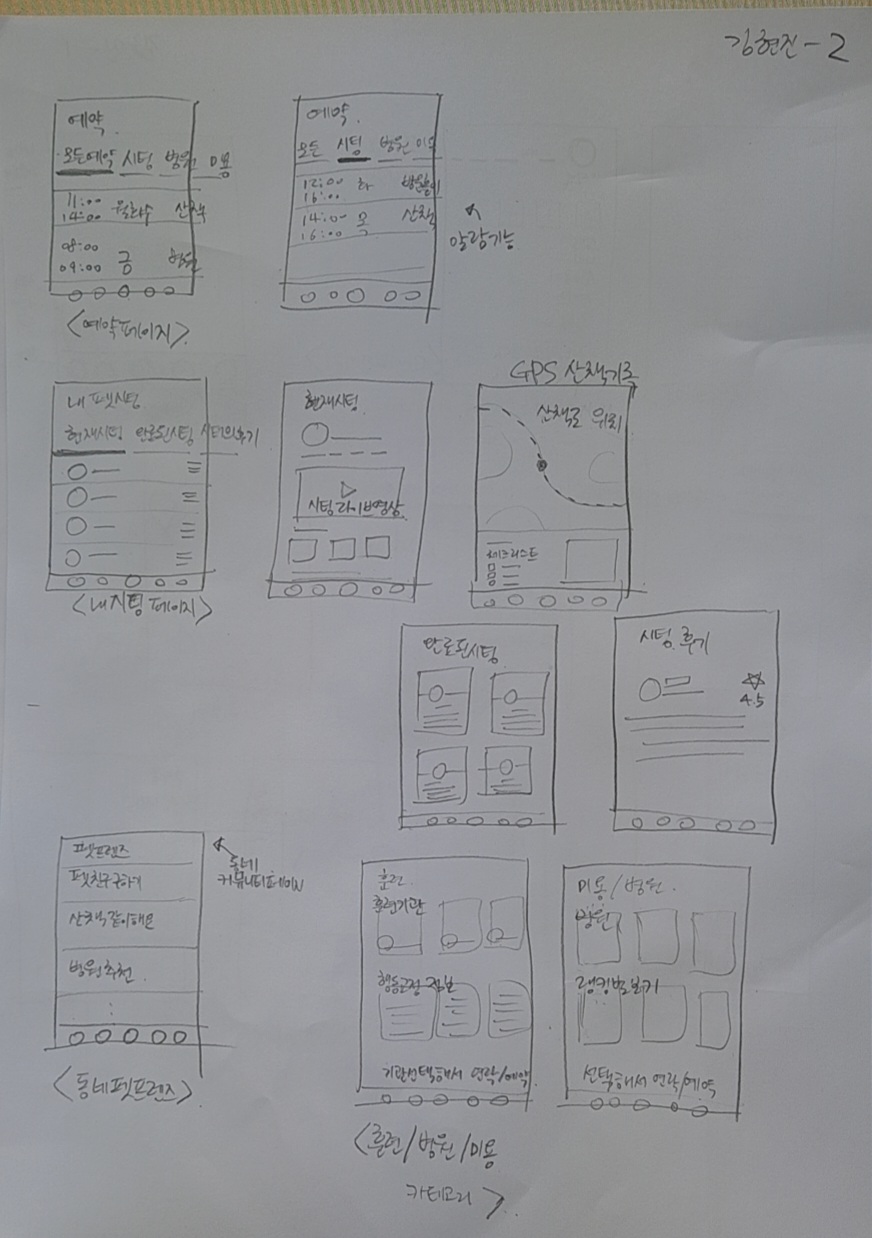 김현진-2
예약
모든예약 시팅 병원 미용
11:00
14:00 월화수 산책
08:00
09:00 금
<예약페이지>
예약
모든 시팅 병원 미용
12:00
16:00 화
14:00
16:00 목 산책
알람기능
내 펫시팅
현재시팅 완료된시팅 시터의후기
<내시팅 페이지>
현재시팅
시팅라이브영상
GPS 산책기록
산책로 위치
체크리스트
완료된시팅
시팅 후기
4.5
펫프렌즈
펫친구구하기
산책같이해요
병원추천
동네
커뮤니티페이지
<동네펫프렌즈>
훈련
훈련기관
행동교정 정보
기관선택해서 연락/예약
미용/병원
병원
랭킹별보기
선택해서 연락/예약
<훈련/병원/미용
카테고리>